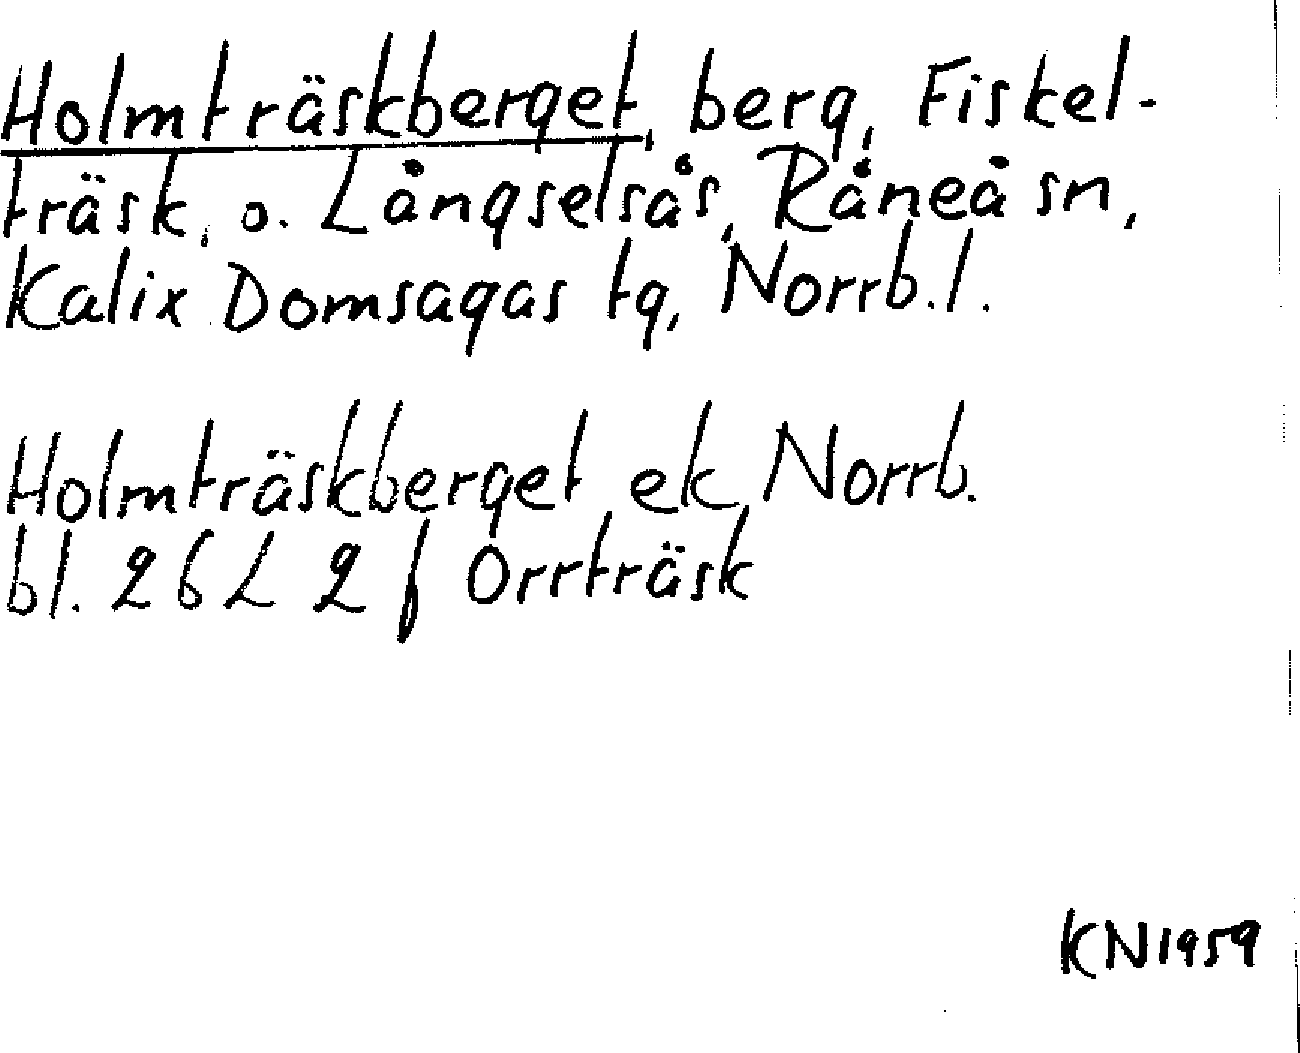 Holmträskberget, berg, Fiskel-
träsk, o. Långselsås, Råneå sn,
Kalix Domsagas tg, Norrb. l.
Holmträskberget ek Norrb.
bl. 26 L 2 f Orrträsk
KN1959